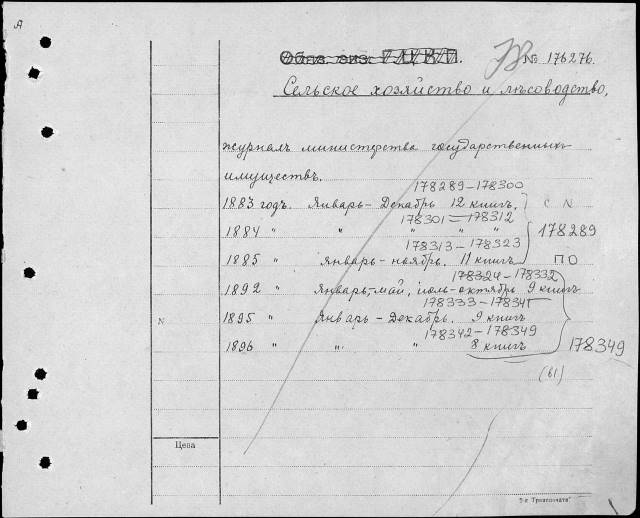 А
№ 176276.
Сельское хозяйство и лѣсоводство,
журналъ министерства государственныхъ
имуществъ.
178289-178300
1883 годъ. Январь-Декабрь 12 книгъ.
с N
178301-178312
1884 " " " " "
178289
178313-178323
1885 " январь-ноябрь. 11 книгъ
ПО
178324-178332
1892 " Январь-май, іюль-октябрь 9 книгъ
178333-178341
N
1895 " Январь-Декабрь. 9 книгъ
178342-178349
1896 " " " 8 книгъ
178349
(61)
Цена